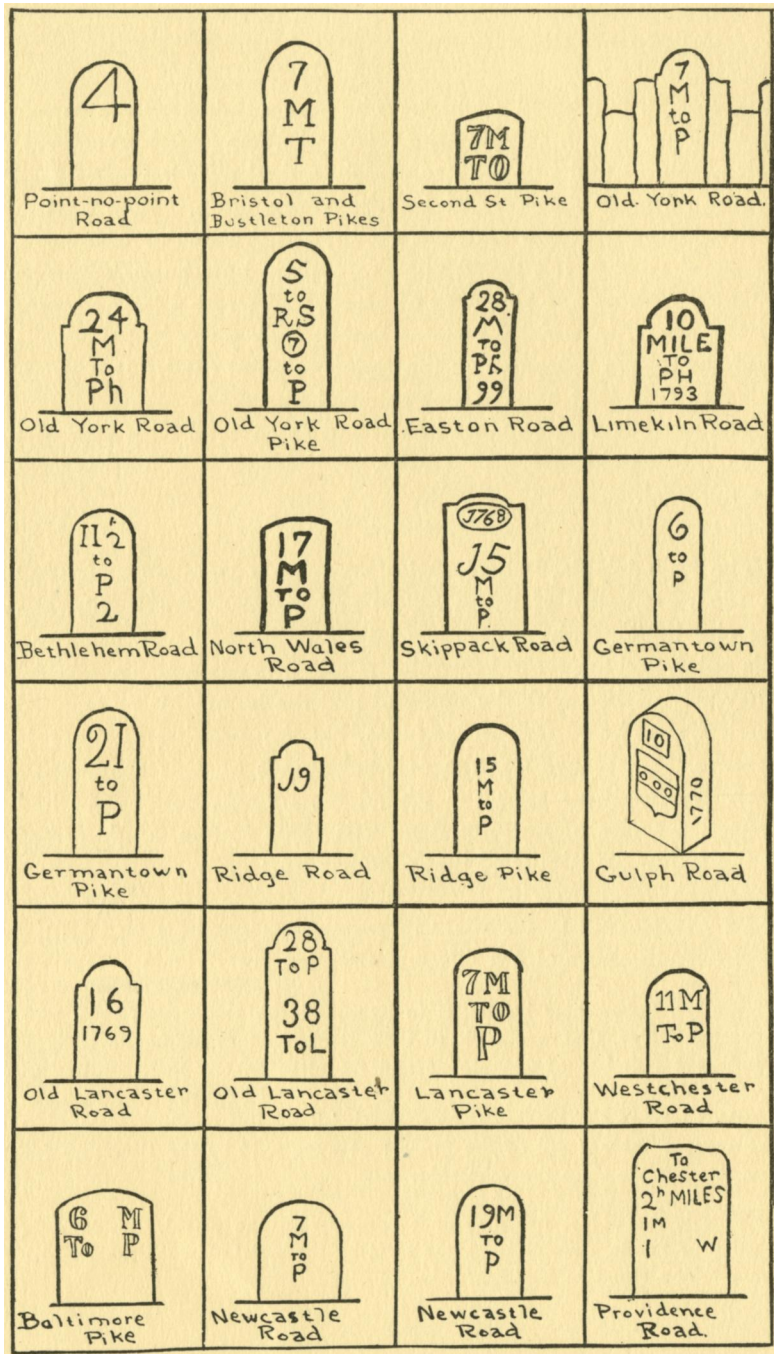 4
Point-no-point
Road
7
M
T
Bristol and
Bustleton Pikes
7M
TO
Second St Pike
7
M
to
P
Old. York Road.
24
M
To
Ph
Old York Road
5
to
RS
7
to
P
Old York Road
Pike
28
M
TO
Ph
99
Easton Road
10
MILE
TO
PH
1793
Limekiln Road
II ½
to
P
2
Bethlehem Road
17
M
TO
P
North Wales
Road
J768
J5
M
to
P
Skippack Road
6
to
P
Germantown
Pike
2I
to
P
Germantown
Pike
J9
Ridge Road
15
M
to
P
Ridge Pike
10
1770
Gulph Road
16
1769
Old Lancaster
Road
28
To P
38
To L
Old Lancaster
Road
7M
TO
P
Lancaster
Pike
11 M
To P
Westchester
Road
6 M
To P
Baltimore
Pike
7
M
TO
P
Newcastle
Road
19M
TO
P
Newcastle
Road
To
Chester
2h MILES
1M
1 W
Providence
Road.